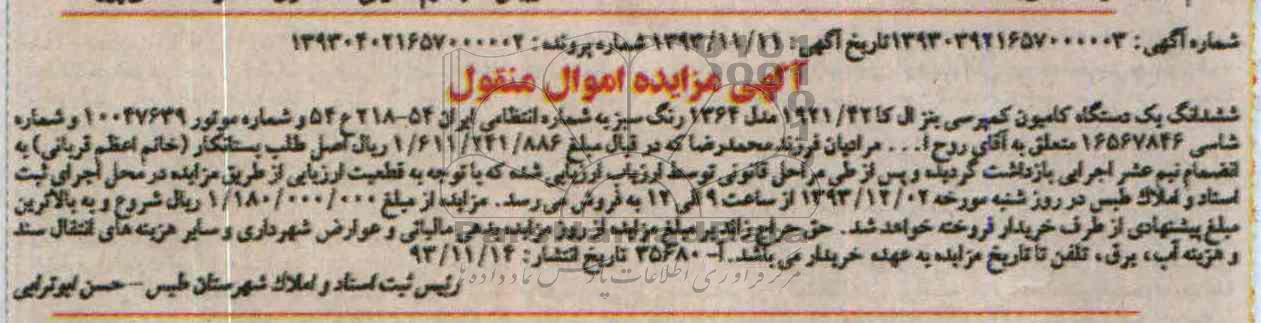 شماره آگهی: ۱۳۹۳۰۳۹۲۱۶۵۷۰۰۰۰۰۳ تاریخ آگهی: ۱۳۹۳/۱۱/۱۱ شماره پرونده: ۱۳۹۳۰۴۰۲۱۶۵۷۰۰۰۰۰۲
آگهی مزایده اموال منقول
ششدانگ یک دستگاه کامیون کمپرسی بنز ال کا ۱۹۲۱/۴۲ مدل ۱۳۶۴ رنگ سبز به شماره انتظامی ایران ۵۴-۲۱۸ ع ۵۴ و شماره موتور ۱۰۰۴۷۶۳۹ و شماره
شاسی ۱۶۵۶۷۸۴۶ متعلق به آقای روح ا... مرادیان فرزند محمدرضا که در قبال مبلغ ۱/۶۱۱/۲۴۱/۸۸۶ ریال اصل طلب بستانکار (خانم اعظم قربانی) به
انضمام نیم عشر اجرایی بازداشت گردیده و پس از طی مراحل قانونی توسط ارزیاب ارزیابی شده که با توجه به قطعیت ارزیابی از طریق مزایده در محل اجرای ثبت
اسناد و املاک طبس در روز شنبه مورخه ۱۳۹۳/۱۲/۰۲ از ساعت ۹ الی ۱۲ به فروش می رسد. مزایده از مبلغ ۱/۱۸۰/۰۰۰/۰۰۰ ریال شروع و به بالاترین
مبلغ پیشنهادی از طرف خریدار فروخته خواهد شد. حق حراج زائد بر مبلغ مزایده از روز مزایده بدهی مالیاتی و عوارض شهرداری و سایر هزینه های انتقال سند
و هزینه آب، برق، تلفن تا تاریخ مزایده به عهده خریدار می باشد. آ-۳۵۶۸۰ تاریخ انتشار: ۹۳/۱۱/۱۴
رئیس ثبت اسناد و املاک شهرستان طبس - حسن ابوترابی